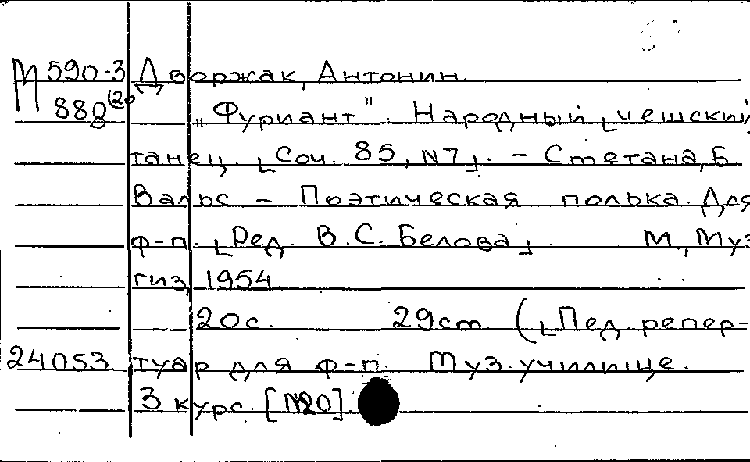 М590-3 Дворжак, Антонин.
888(20) "Фуриант". Народный [чешский
танец. [Соч. 85, №7]. - Сметана, Б.
Вальс - Поэтическая полька. Для
ф-п. [Ред. В.С. Белова] М., Муз-
гиз, 1954
20с. 29cm. ([Пед. репер-
24053 туар для ф-п. Муз. училище.
3 курс. [№20]